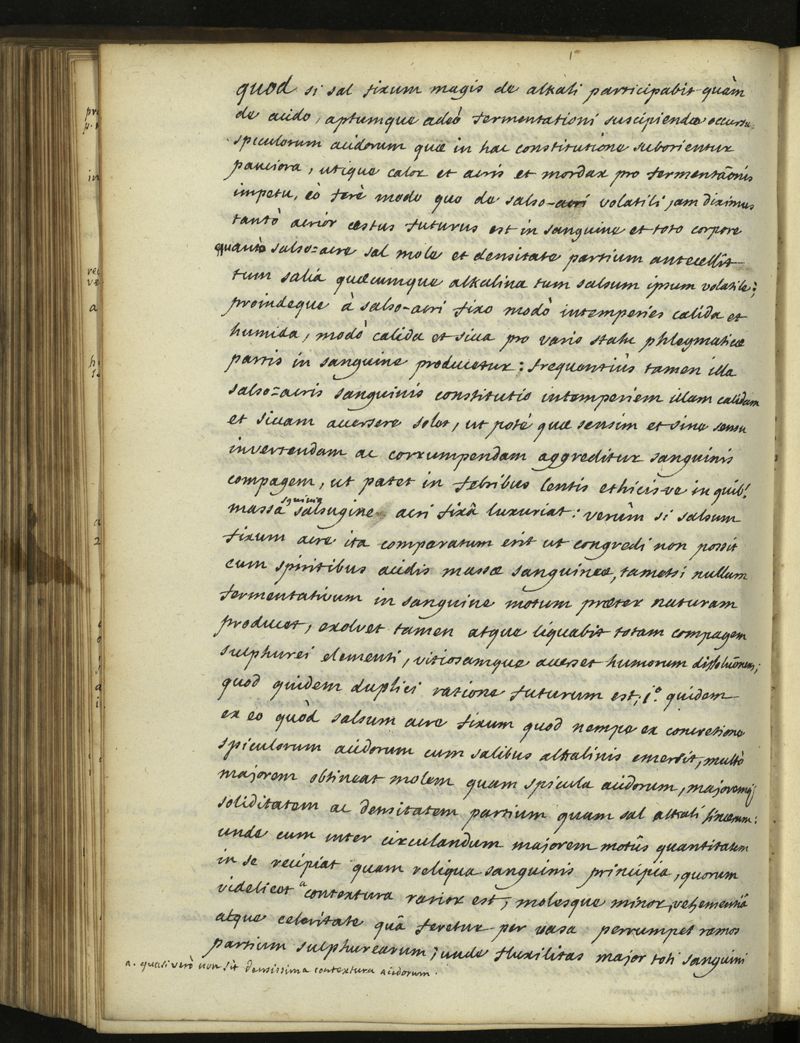 quod si sal fixum magis de alkali participabit quàm
de acido, aptumque adeò fermentationi suscipiendæ occursu
spiculorum acidorum quæ in hac constitutione suborientur
pauciora, utique calor et acris et mordax pro fermentãonis
impetu, eò ferè modo quo de salso-acri volatili jam diximus
tantò acrior æstus futurus est in sanguine et toto corpore
quantò salso=acre sal mole et densitate partium antecellit
tum salia quæcumque alkalina tum salsum ipsum volatile;
proindeque à salso-acri fixo modò intemperies calida et
humida, modò calida et sicca pro vario statu phlegmaticæ
partis in sanguine producetur: frequentiùs tamen illa
salso=acris sanguinis constitutio intemperiem illam calidam
et siccam accersere solet, ut potè quæ sensim et sine sensu
invertendam ac corrumpendam aggreditur sanguinis
compagem, ut patet in febribus lentis ethicisve in quib9
massa sanguinis salsugine acri fixâ luxuriat: verùm si salsum
fixum acre ita comparatum erit ut congredi non possit
cum spiritibus acidis massæ sanguineæ, tametsi nullum
fermentativum in sanguine motum præter naturam
producet, exolvet tamen atque liquabit totam compagem
sulphurei elementi, vitiosamque accerset humorum dissoluõnem;
quod quidem duplici ratione futurum est, 1.o quidem
ex eo quòd salsum acre fixum quod nempe ex concretione
spiculorum acidorum cum salibus alkalinis emersit, multò
majorem obtineat molem quam spicula acidorum, majoremq;
soliditatem ac densitatem partium quam sal alkali sincerum:
unde cum inter circulandum majorem motûs quantitatem
in se recipiat quam reliqua sanguinis principia, quorum
videlicet a contextura rarior est, molesque minor, vehementiâ
atque celeritate quâ feretur per vasa perrumpet ramos
partium sulphurearum; unde fluxilitas major toti sanguini
a. quasi verò non sit densissima contextura acidorum.